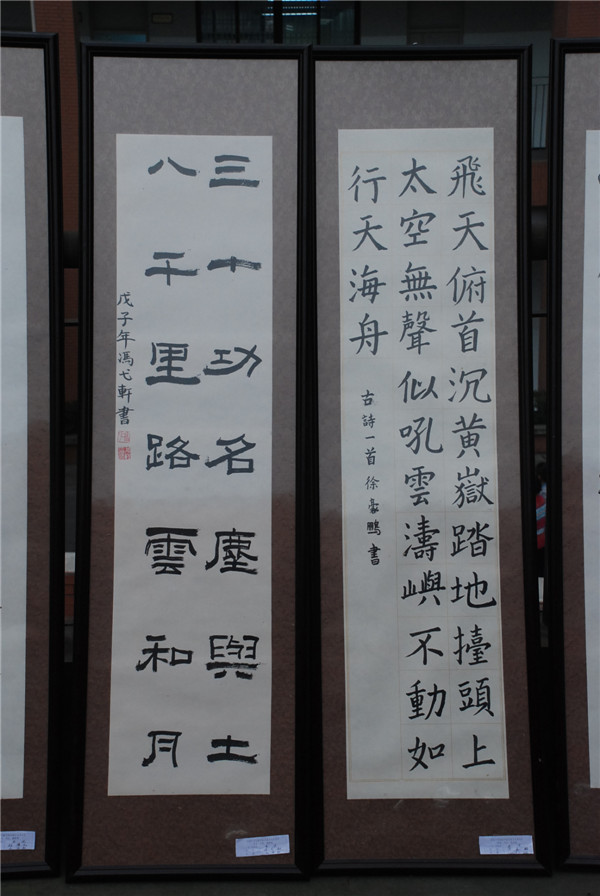 飛天俯首沉黄嶽踏地擡頭上
太空無聲似吼雲濤嶼不動如
行天海舟
古詩一首徐豪鵬書
三十功名塵與土
八千里路雲和月
戊子年馮弋軒書